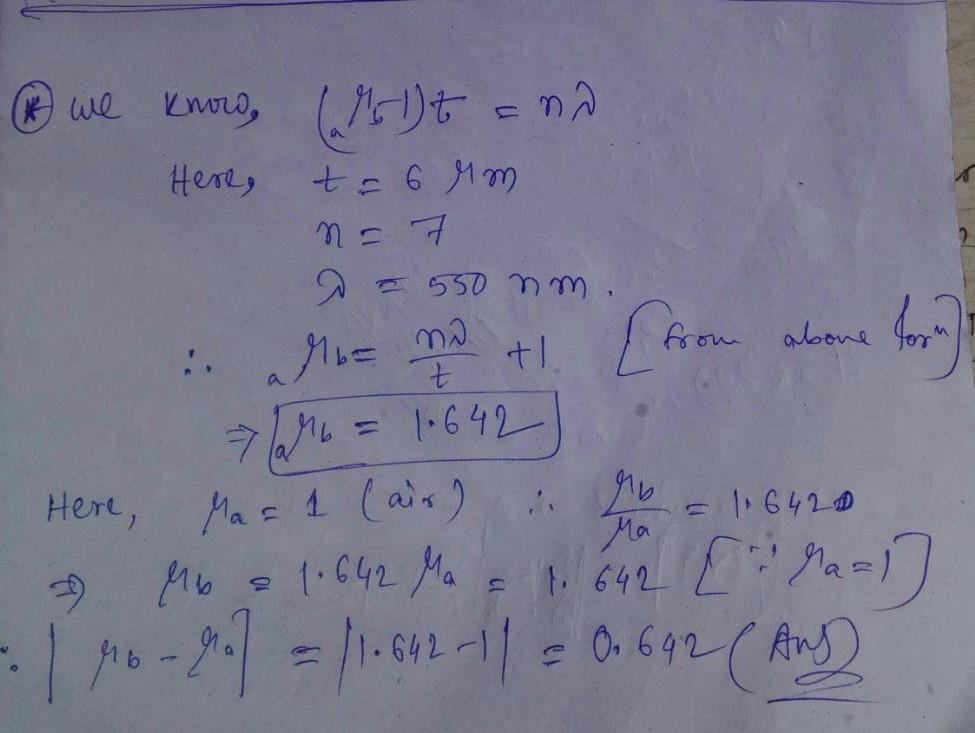 * we know, (ₐμb-1)t = nλ
Here, t = 6 μm
n = 7
λ = 550 nm.
∴ ₐμb = nλ/t +1 [from above forⁿ]
⇒ ₐμb = 1.642
Here, μa = 1 (air) ∴ μb/μa = 1.642
⇒ μb = 1.642 μa = 1.642 [∵ μa=1]
∴ |μb - μa| = |1.642-1| = 0.642 (Ans)